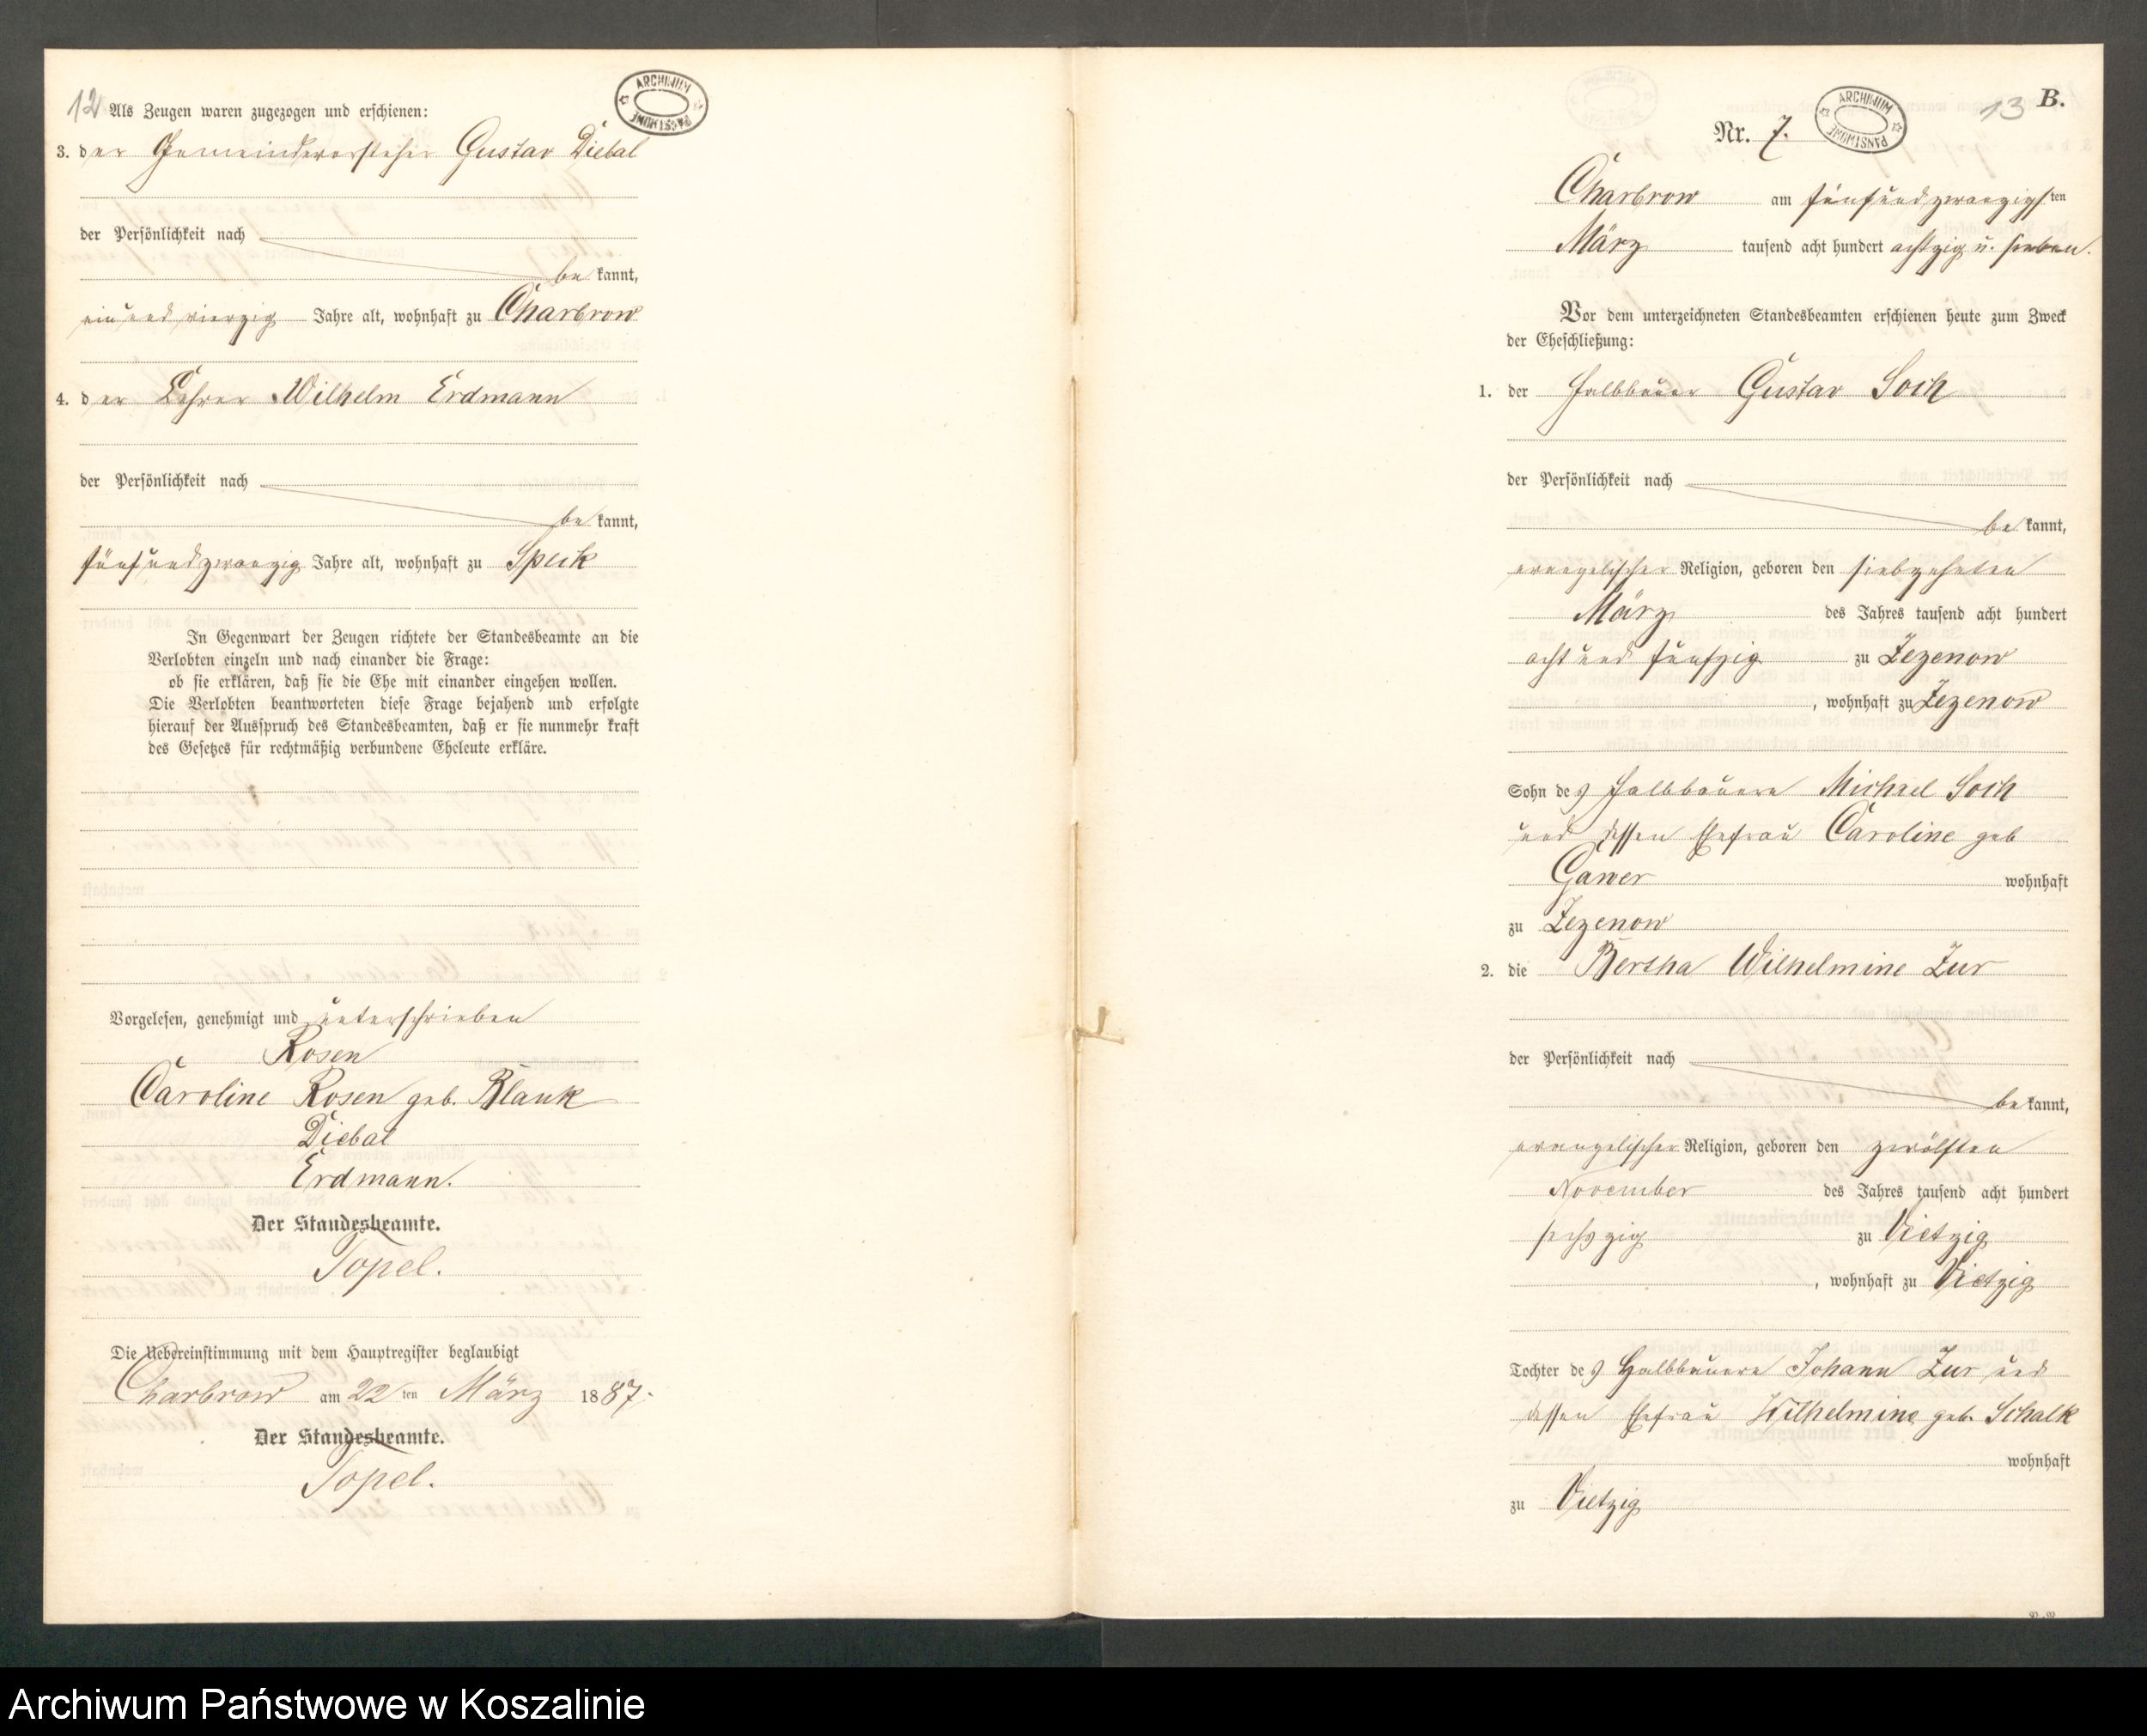 12
ARCHIWUM PAŃSTWOWE
Als Zeugen waren zugezogen und erschienen:
3. der Gemeindevorsteher Gustav Diebal
der Persönlichkeit nach
be kannt,
einundvierzig Jahre alt, wohnhaft zu Charbrow
4. der Lehrer Wilhelm Erdmann
der Persönlichkeit nach
be kannt,
fünfundzwanzig Jahre alt, wohnhaft zu Speck
In Gegenwart der Zeugen richtete der Standesbeamte an die
Verlobten einzeln und nach einander die Frage:
ob sie erklären, daß sie die Ehe mit einander eingehen wollen.
Die Verlobten beantworteten diese Frage bejahend und erfolgte
hierauf der Ausspruch des Standesbeamten, daß er sie nunmehr kraft
des Gesetzes für rechtmäßig verbundene Eheleute erkläre.
Vorgelesen, genehmigt und unterschrieben
Rosen
Caroline Rosen geb. Blank
Diebal
Erdmann.
Der Standesbeamte.
Topel.
Die Uebereinstimmung mit dem Hauptregister beglaubigt
Charbrow am 22 ten März 1887.
Der Standesbeamte.
Topel.
13 B.
ARCHIWUM PAŃSTWOWE
Nr. 7.
Charbrow am fünfundzwanzigsten
März tausend acht hundert achtzig u. sieben.
Vor dem unterzeichneten Standesbeamten erschienen heute zum Zweck
der Eheschließung:
1. der Halbbauer Gustav Soih
der Persönlichkeit nach
be kannt,
evangelischer Religion, geboren den siebzehnten
März des Jahres tausend acht hundert
acht und fünfzig zu Zezenow
, wohnhaft zu Zezenow
Sohn des Halbbauern Michael Soih
und dessen Ehefrau Caroline geb
Gawer wohnhaft
zu Zezenow
2. die Bertha Wilhelmine Zur
der Persönlichkeit nach
be kannt,
evangelischer Religion, geboren den zwölften
November des Jahres tausend acht hundert
sechszig zu Vietzig
, wohnhaft zu Vietzig
Tochter des Halbbauern Johann Zur und
dessen Ehefrau Wilhelmine geb. Schalk
wohnhaft
zu Vietzig
Archiwum Państwowe w Koszalinie